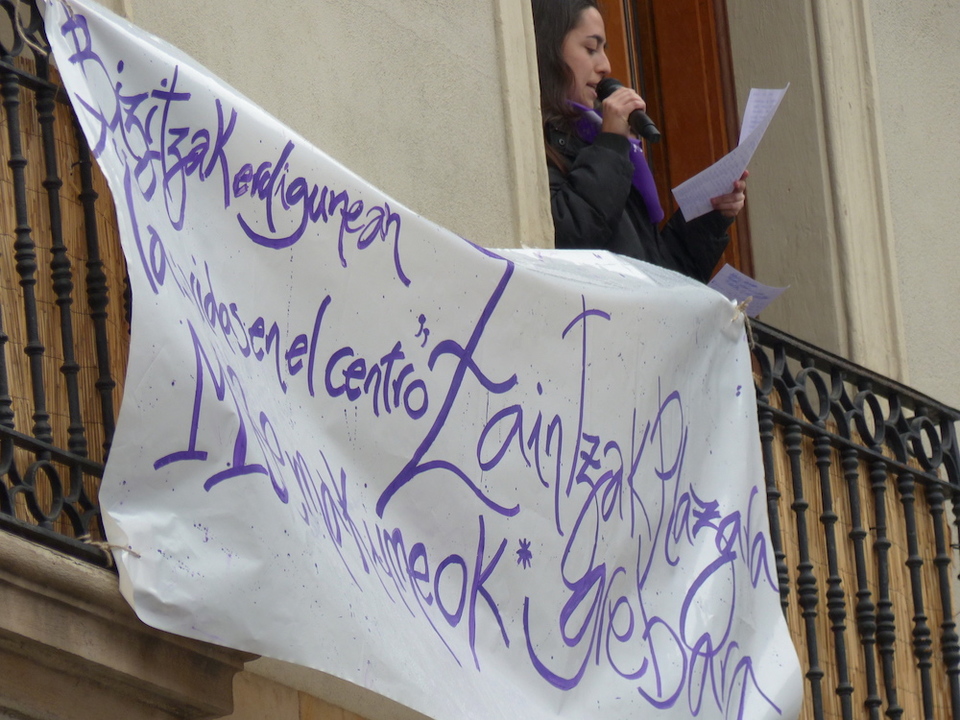 Bizitzak erdigunean
la vidas en el centro"
Zaintzak plazara
M8 emakumeok* greBara